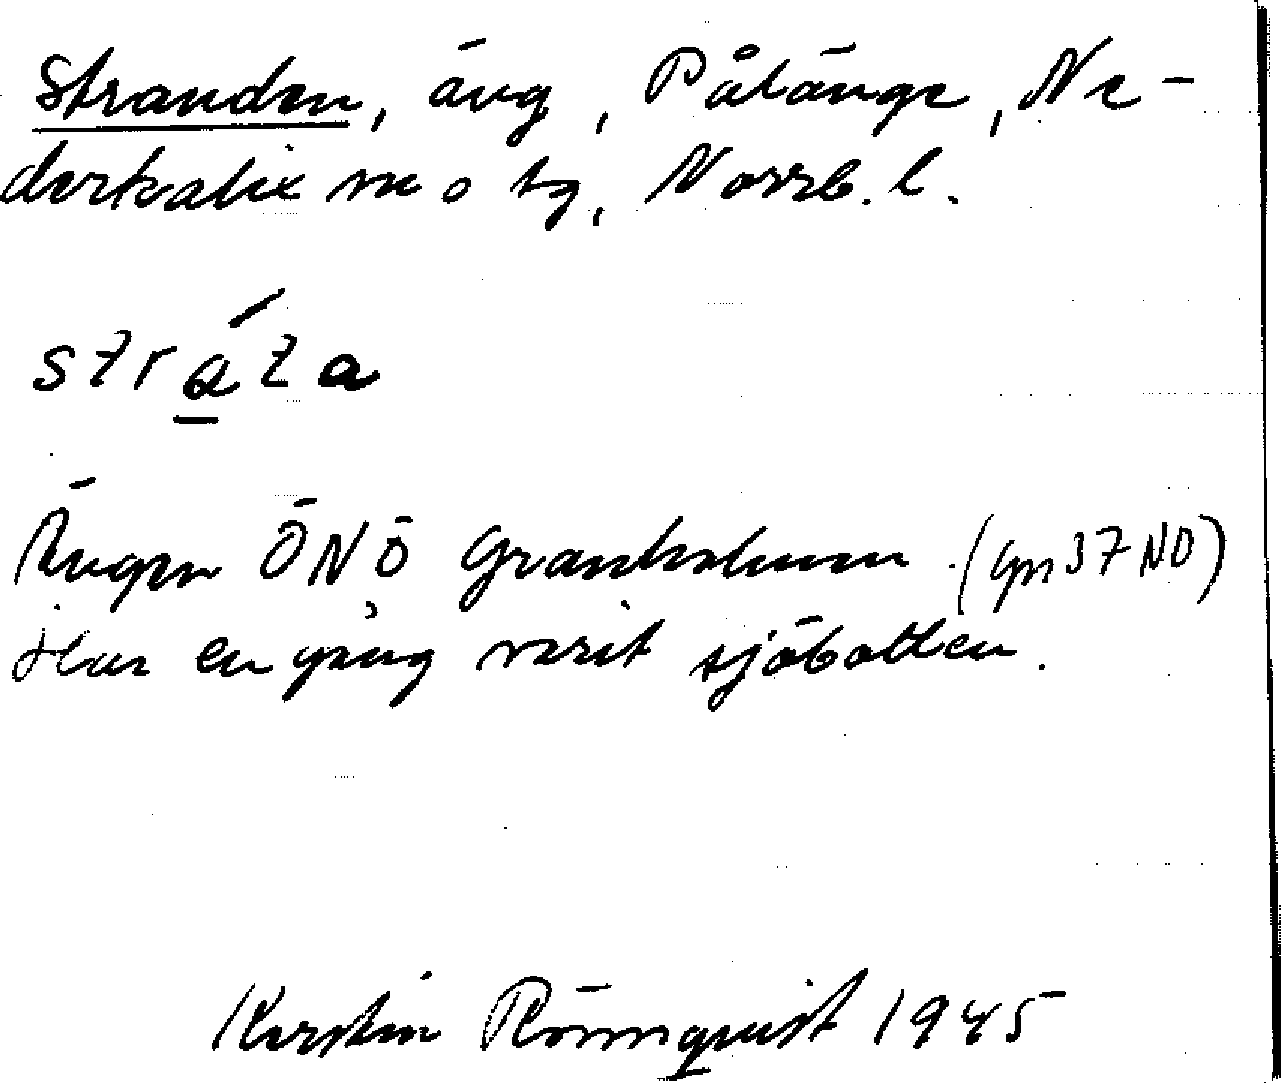 Stranden, äng, Pålänge, Ne-
derkalix sn o tg, Norrb. l.
stráta
Ängen ÖNÖ Granholmen (gn 37 NO)
Har en gång varit sjöbotten.
Kerstin Rönnqvist 1945